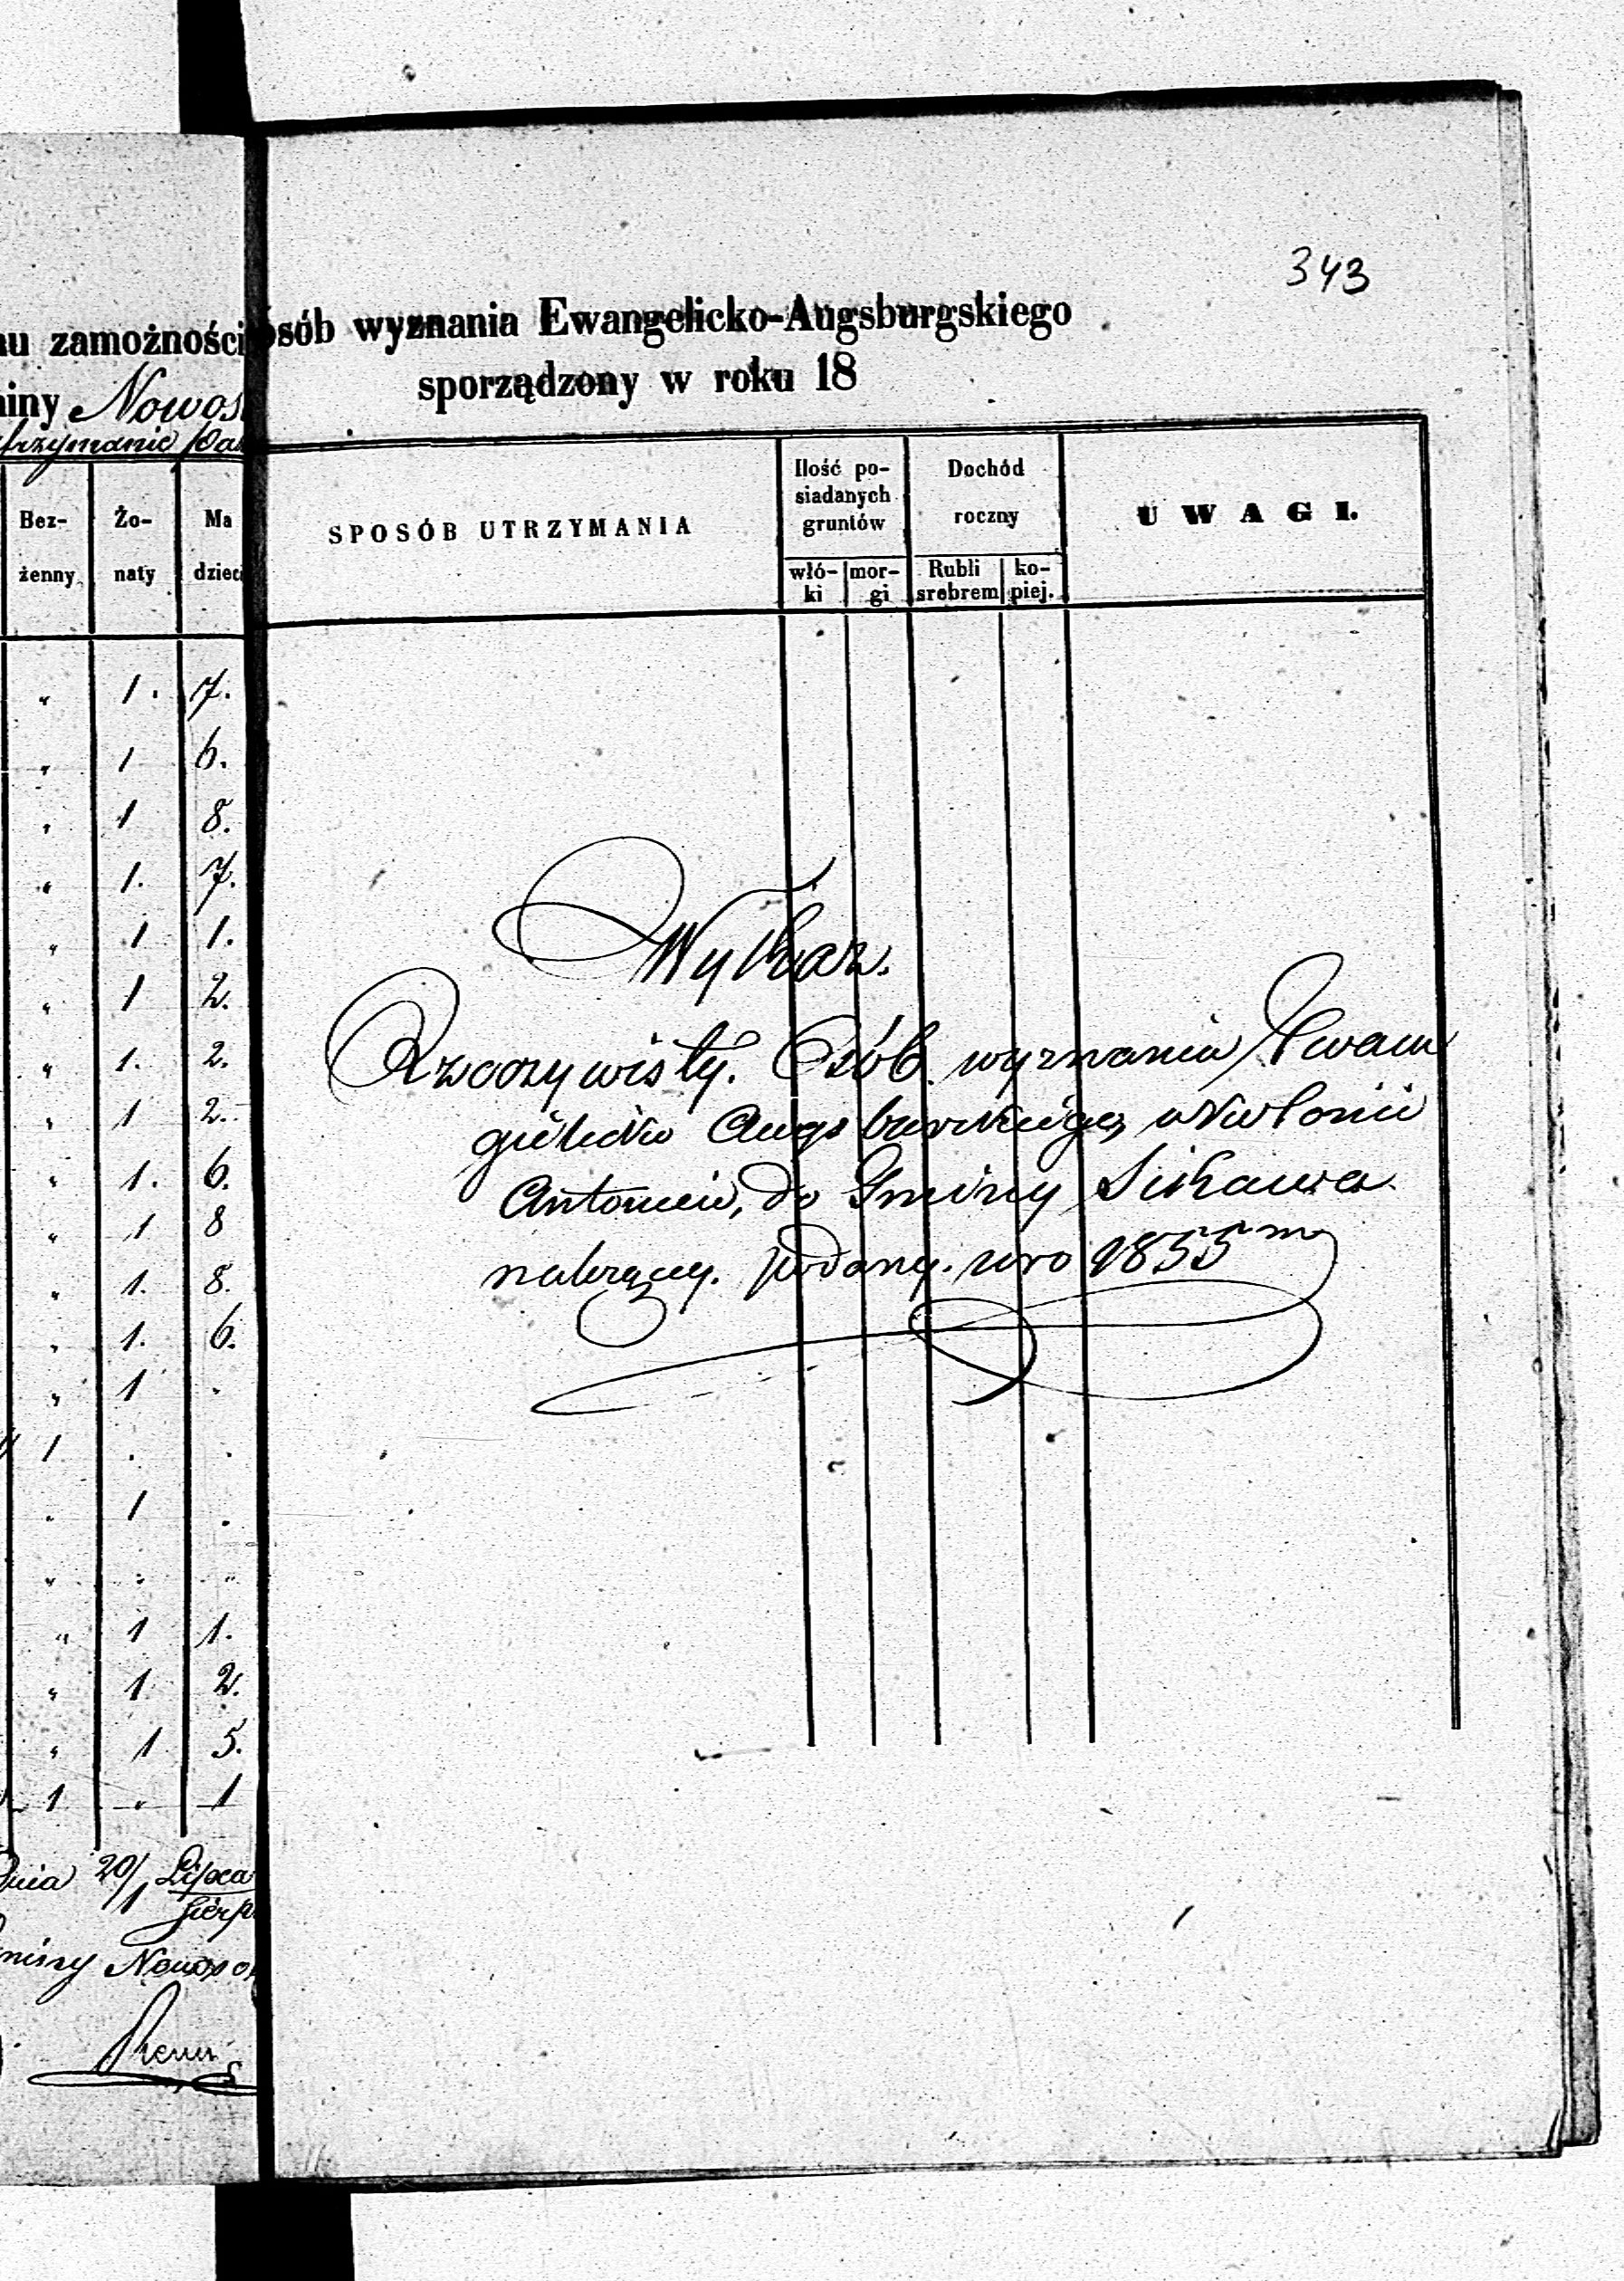 343
zamożności osób wyznania Ewangelicko-Augsburgskiego
sporządzony w roku 18
Nowos
Bez-
żenny
Żo-
naty
Ma
dzieci
SPOSÓB UTRZYMANIA
Ilość po-
siadanych
gruntów
włó-
ki
mor-
gi
Dochód
roczny
Rubli
srebrem
ko-
piej.
UWAGI.
" 1. 7.
" 1 6.
" 1 8.
" 1. 7.
" 1 1.
" 1 2.
" 1. 2.
" 1 2.
" 1. 6.
" 1 8
" 1. 8.
" 1. 6.
" 1 .
1 . .
. 1 .
" " "
" 1 1.
" 1 2.
" 1 5.
1 " 1
Wykaz.
Rzeczywisty. Osób wyznania Ewan
gielicko Augsburskiego, w Kolonii
Antoniew, do Gminy Sikawa
należący. podany. w ro 1855m
Dnia 20/1 Lipca
Sierp
Nowoso